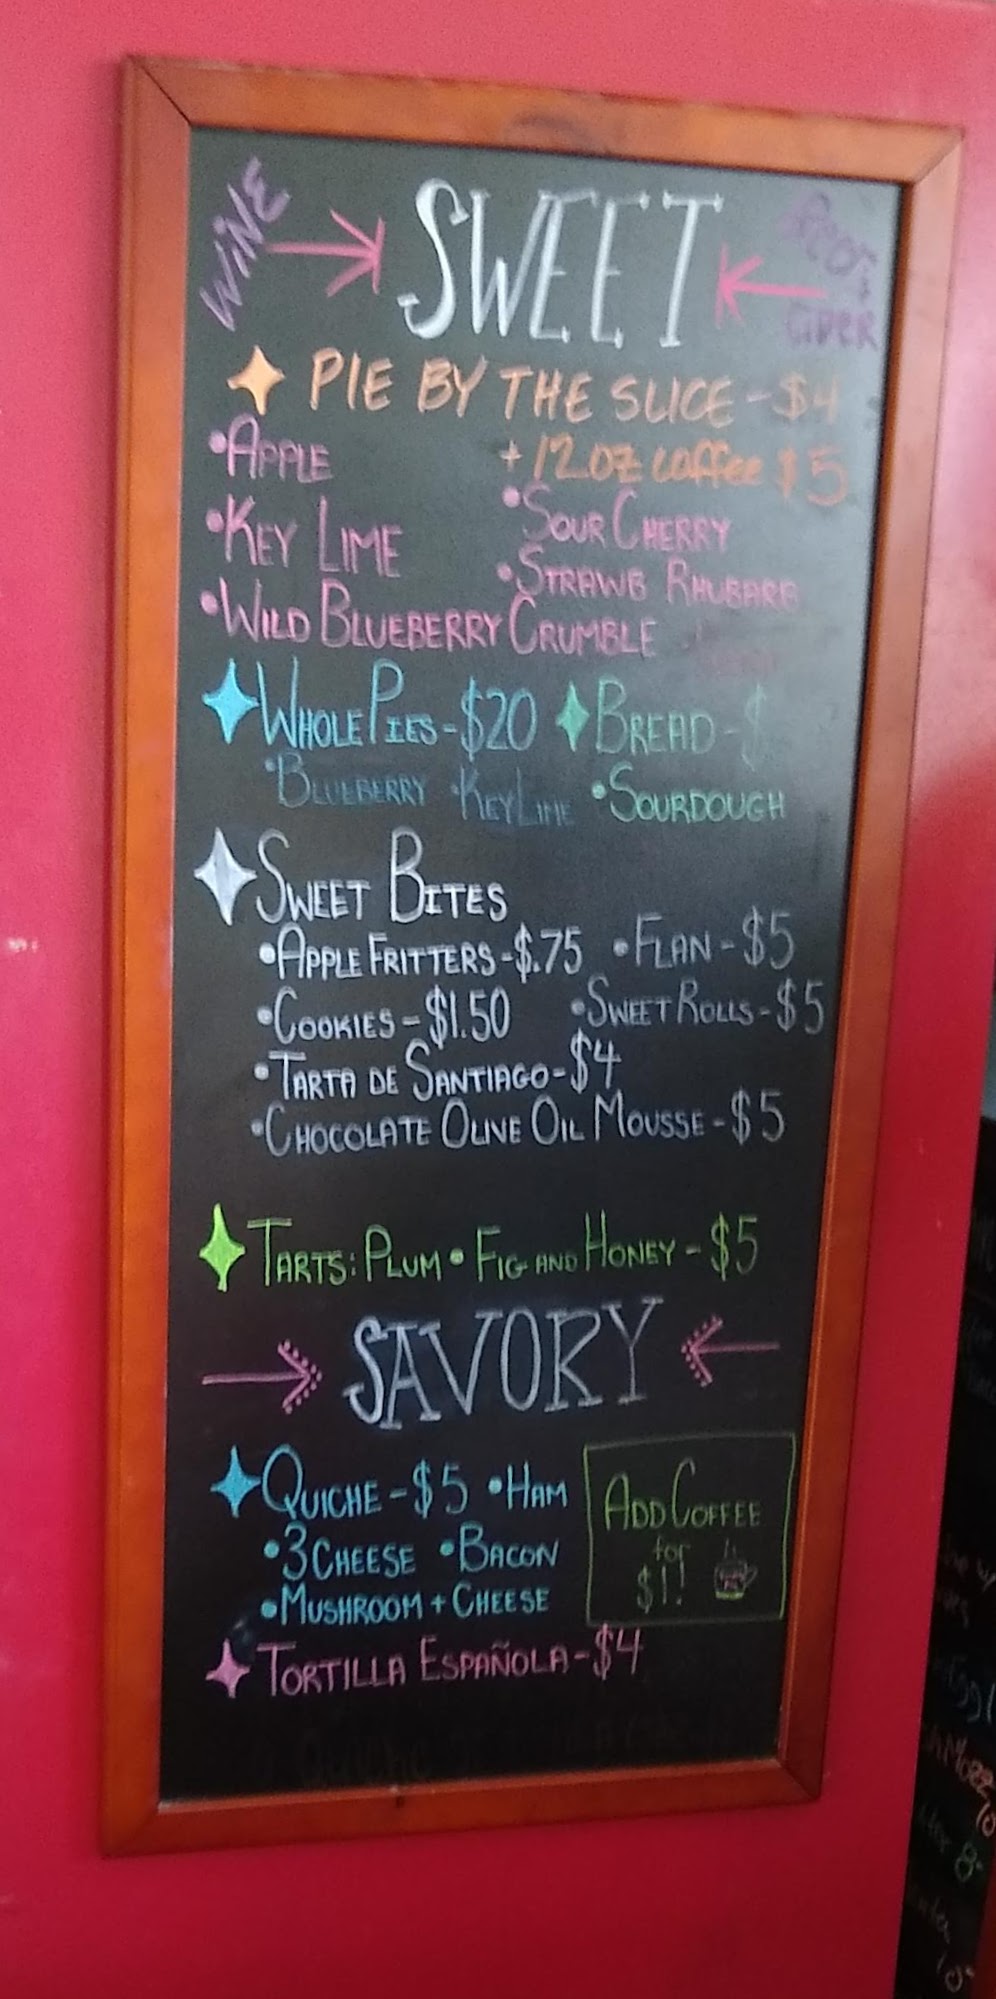 WINE
SWEET
CIDER
PIE BY THE SLICE - $4
+ 12 oz coffee $5
• APPLE
• SOUR CHERRY
• KEY LIME
• STRAWB RHUBARB
• WILD BLUEBERRY CRUMBLE
WHOLE PIES - $20
BREAD - $
• BLUEBERRY • KEY LIME
• SOURDOUGH
SWEET BITES
• APPLE FRITTERS - $.75 • FLAN - $5
• COOKIES - $1.50 • SWEET ROLLS - $5
• TARTA DE SANTIAGO - $4
• CHOCOLATE OLIVE OIL MOUSSE - $5
TARTS: PLUM • FIG AND HONEY - $5
SAVORY
QUICHE - $5 • HAM
• 3 CHEESE • BACON
• MUSHROOM + CHEESE
ADD COFFEE
for
$1!
TORTILLA ESPAÑOLA - $4